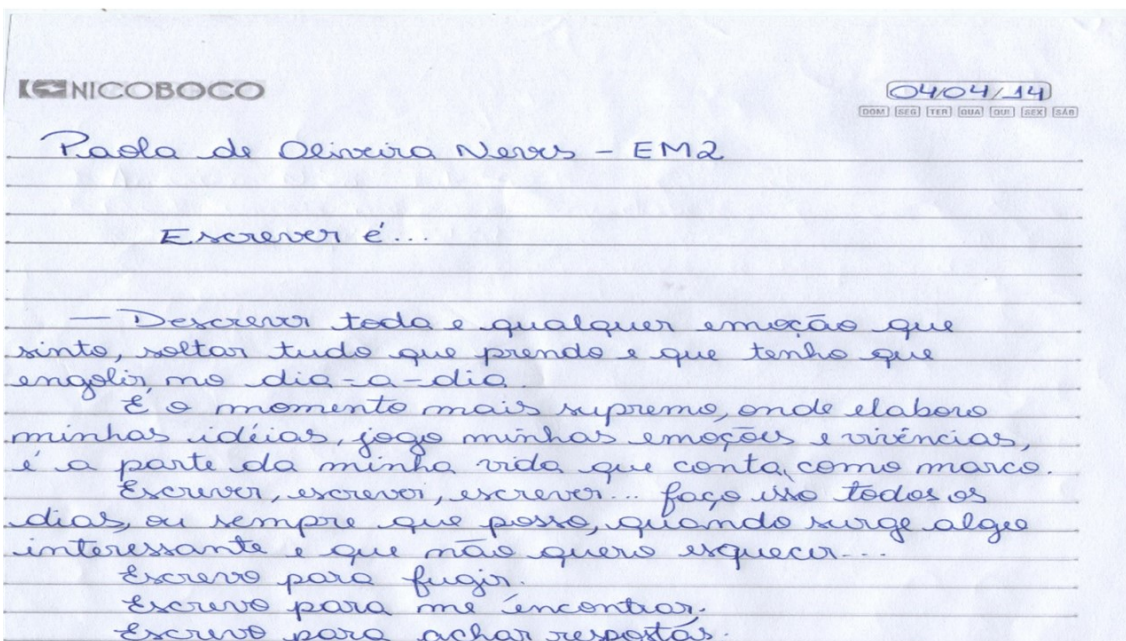 NICOBOCO
04/04/14
DOM SEG TER QUA QUI SEX SÁB
Paola de Oliveira Neves - EM2
Escrever é...
— Descrever toda e qualquer emoção que
sinto, soltar tudo que prendo e que tenho que
engolir no dia-a-dia.
É o momento mais supremo, onde elaboro
minhas idéias, jogo minhas emoções e vivências,
é a parte da minha vida que conta como marco.
Escrever, escrever, escrever... faço isso todos os
dias, ou sempre que posso, quando surge algo
interessante e que não quero esquecer...
Escrevo para fugir.
Escrevo para me encontrar.
Escrevo para achar respostas.